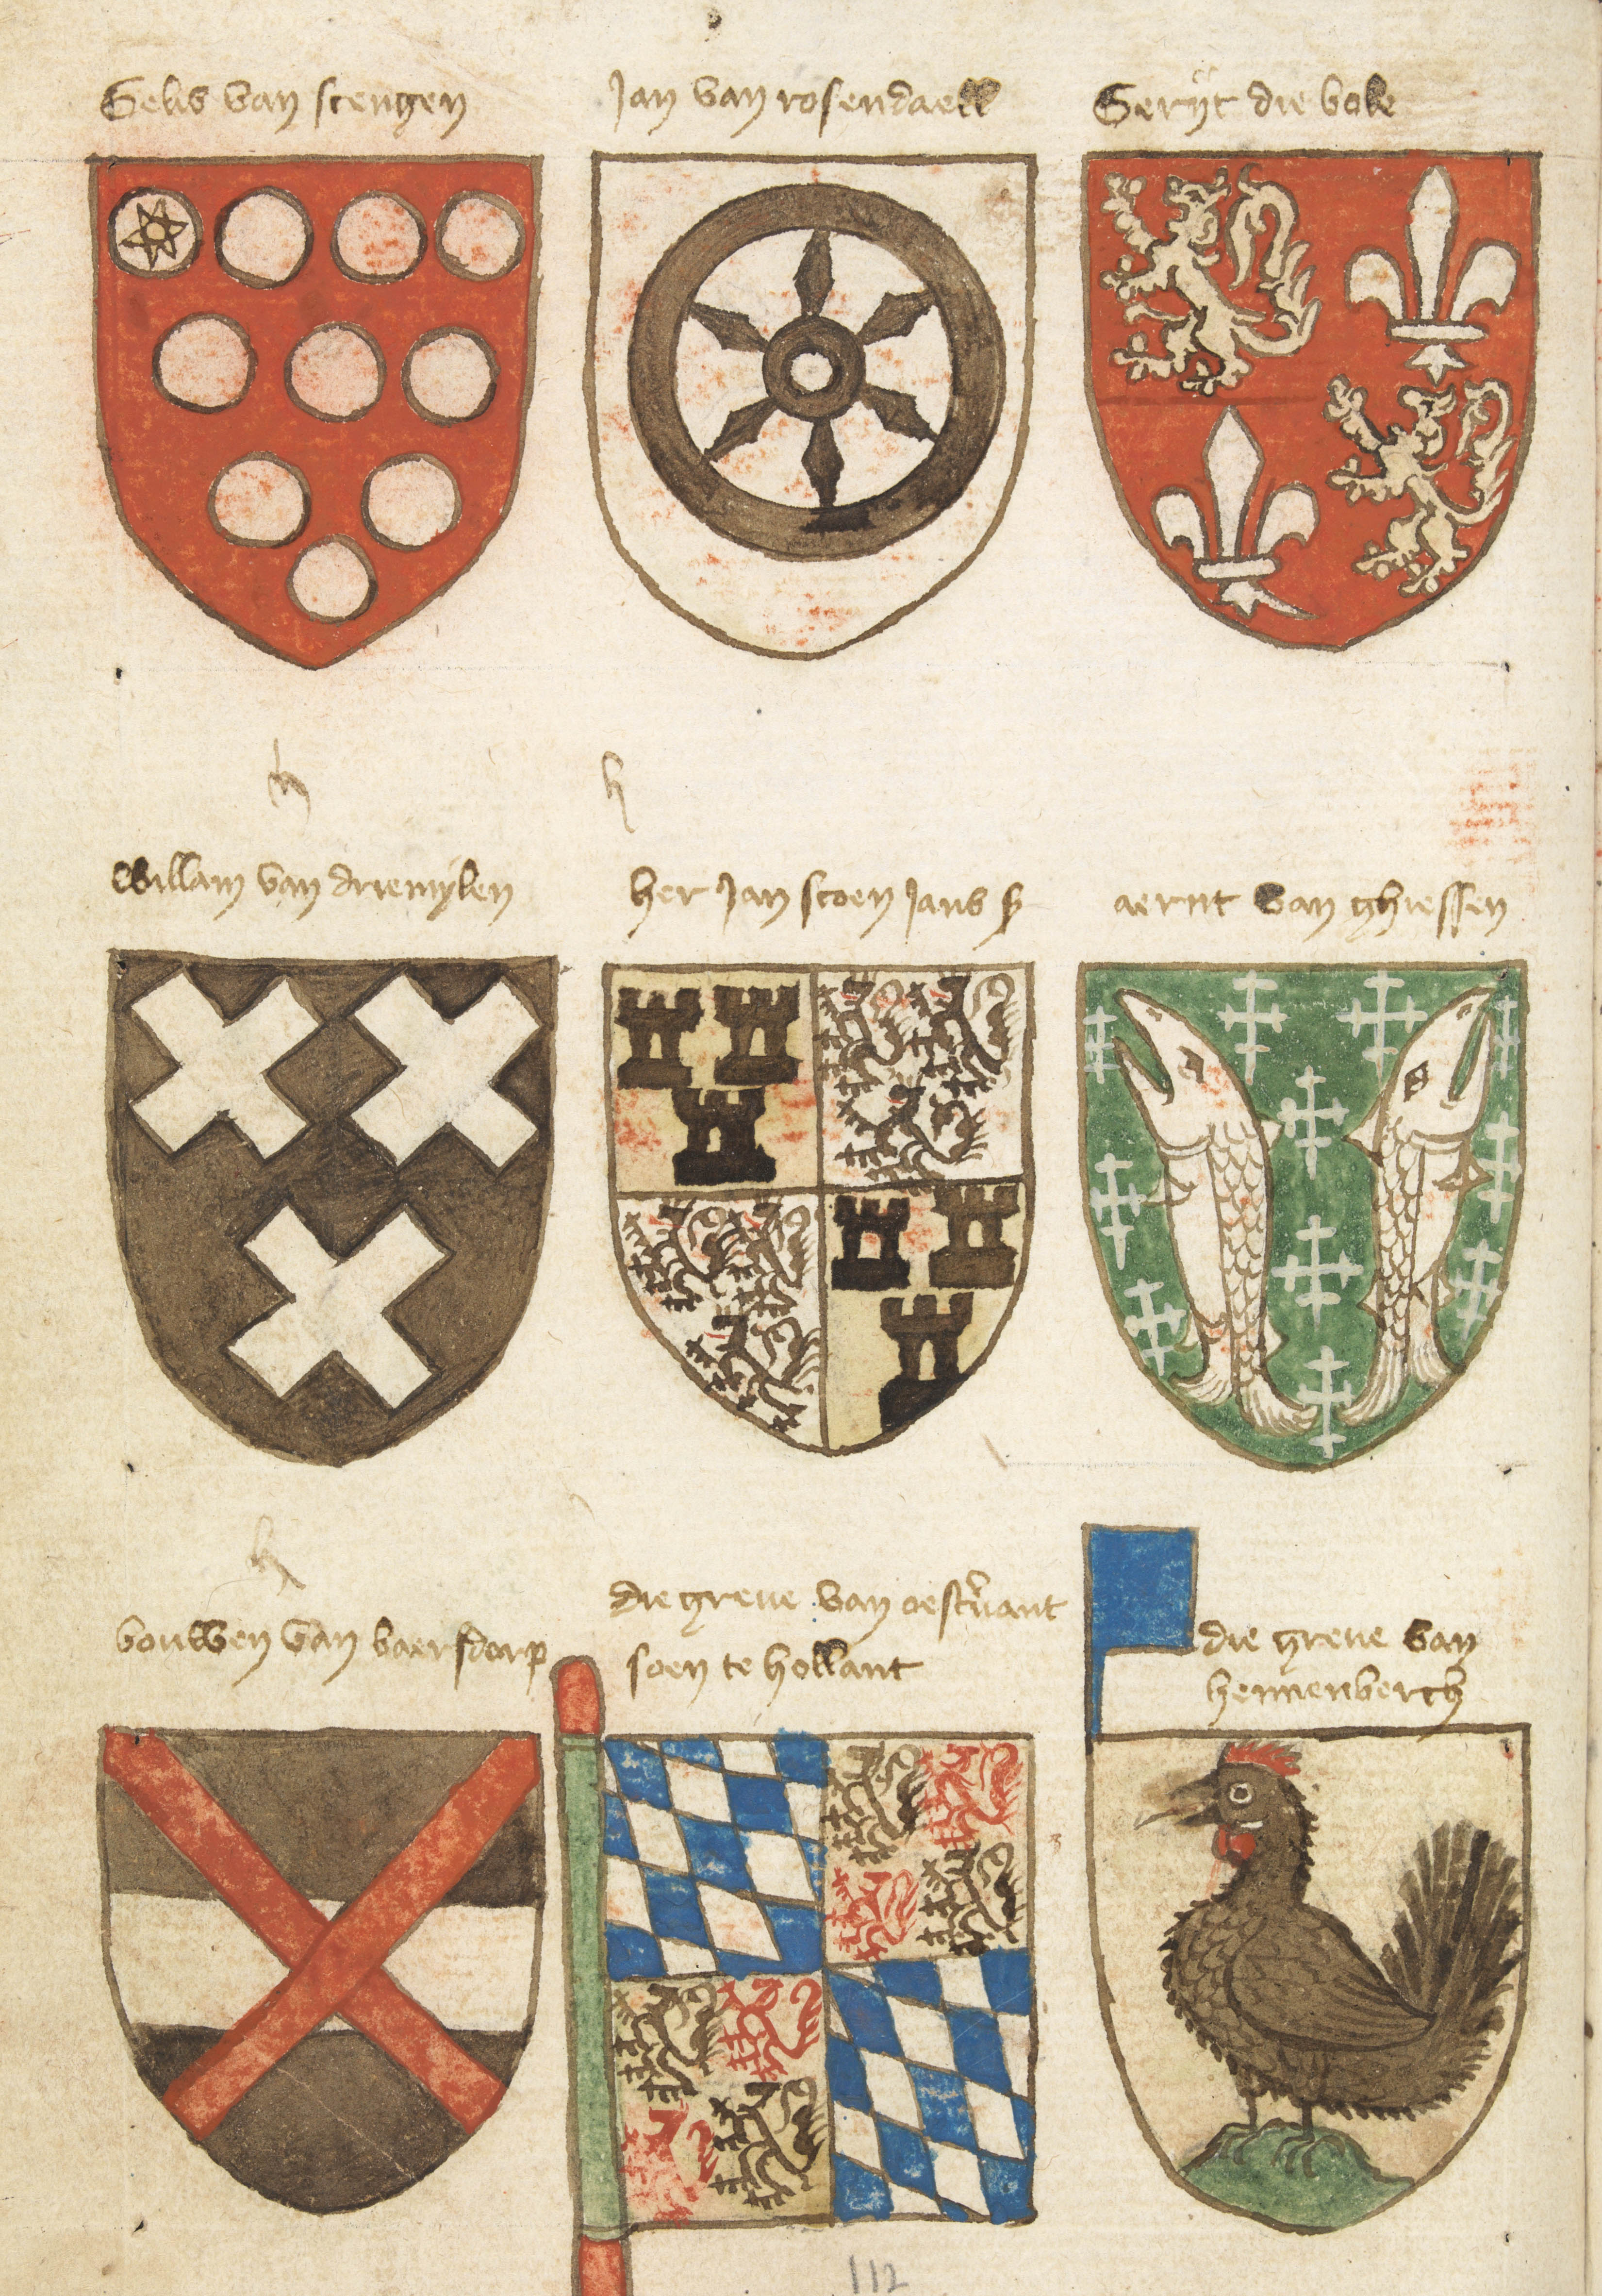 Gelis van scengen
Jan van rosendaell
Gerijt die voke
h
h
Willam van driemijlen
her Jan scoen Jans ß
aernt van ghiessen
h
bouwen van baersdorp
die greue van oestr̃uant
soen te hollant
die greue van
hennenberch
112